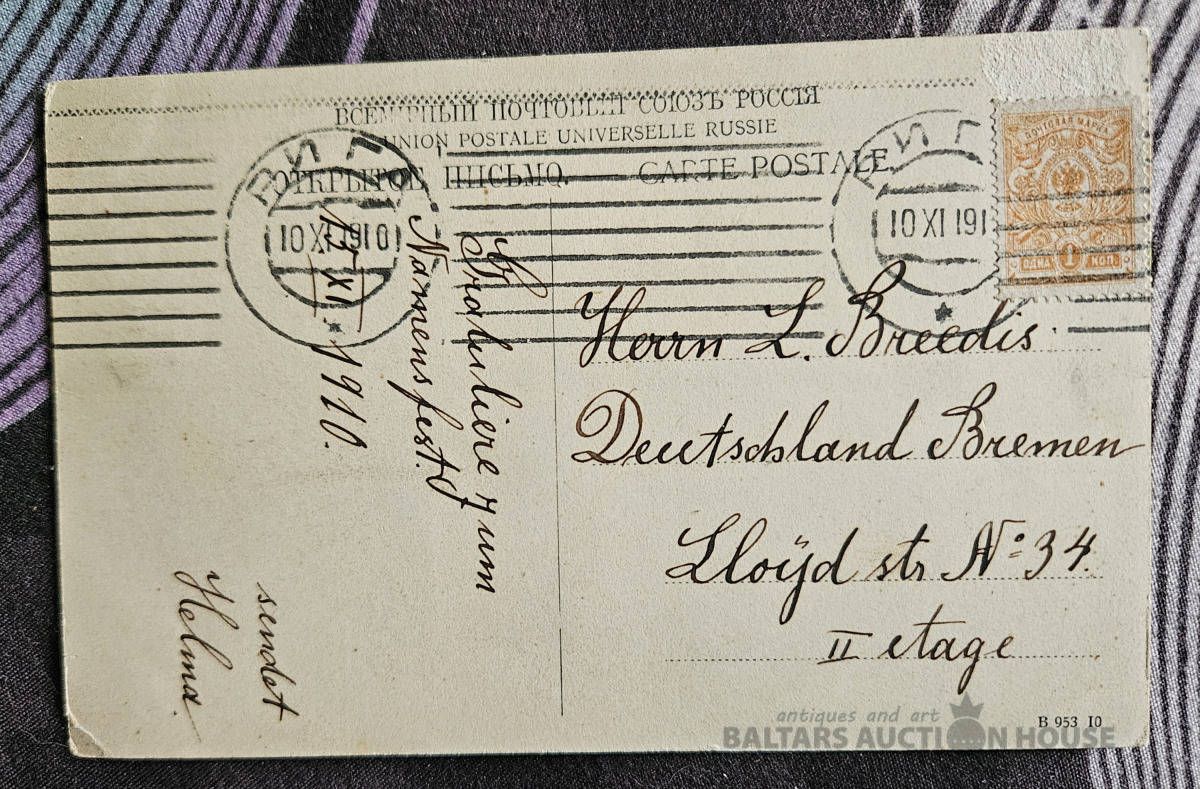 ВСЕМІРНЫЙ ПОЧТОВЫЙ СОЮЗЪ РОССІЯ
UNION POSTALE UNIVERSELLE RUSSIE
ОТКРЫТОЕ ПИСЬМО. CARTE POSTALE
РИГА
10 XI 1910
РИГ
10 XI 191
ПОЧТОВАЯ МАРКА
ОДНА 1 КОП.
Gratuliere zum
Namensfest.
XI 1910.
sendet
Helma.
Herrn L. Breedis.
Deutschland Bremen
Lloÿd str. No 34.
II etage
B 953 10
antiques and art
BALTARS AUCTION HOUSE